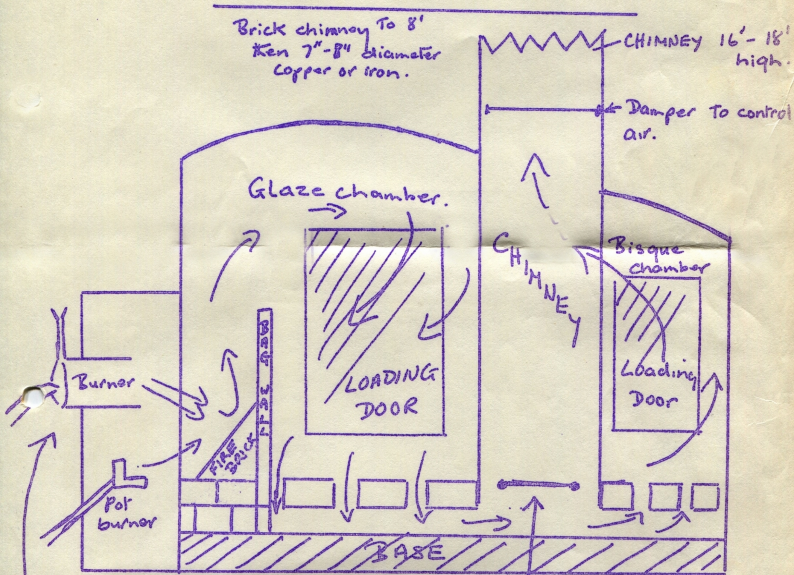 Brick chimney To 8'
then 7"-8" diameter
Copper or iron.
CHIMNEY 16'-18'
high.
Damper To control
air.
Glaze chamber.
CHIMNEY
Bisque
chamber
Burner
BAG WALL
LOADING
DOOR
Loading
Door
FIRE
BRICK
Pot
burner
BASE